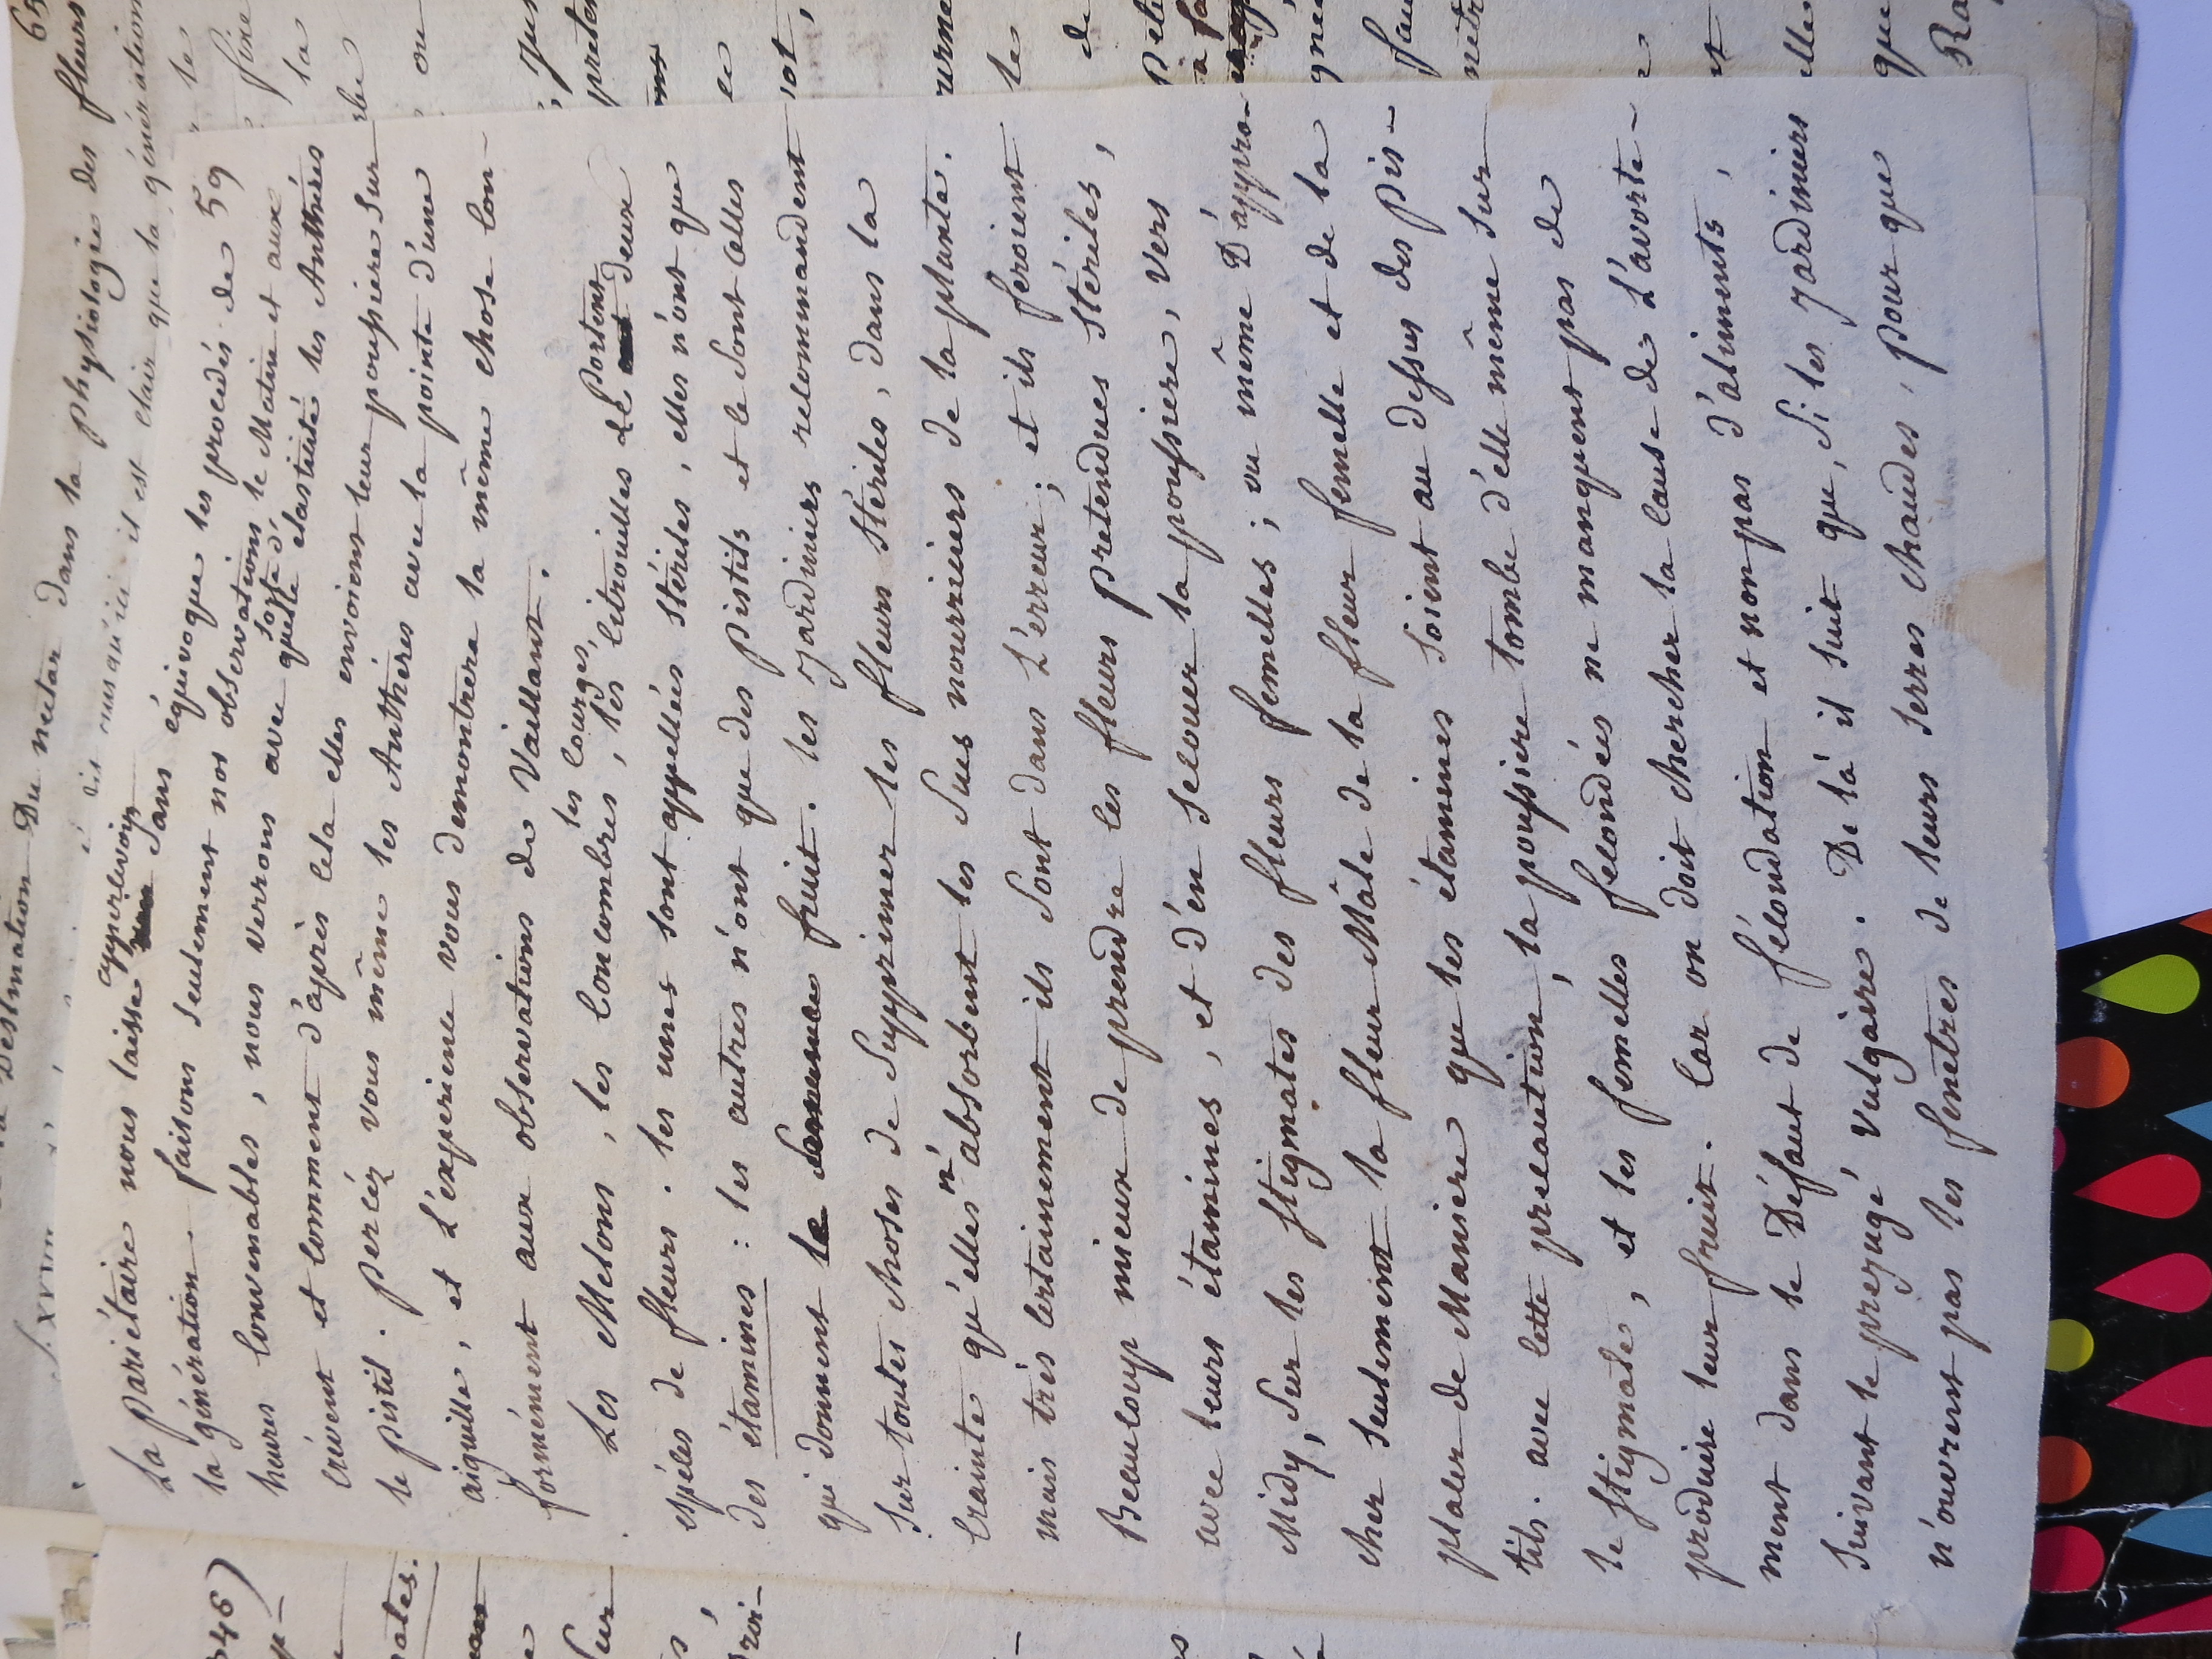 Destination Du nectar dans la physiologie des fleurs 65
dit jusqu'ici il est clair que la génération
La pariétaire nous laisse appercevoir sans équivoque les procédés de 59
la génération. faisons seulement nos observations le Matin et aux
heures Convenables, nous verrons avec quelle sorte d'élasticité les Anthéres
crévent et comment d'après cela elles envoient leur poussiere sur
le pistil. percéz vous même les Anthéres avec la pointe d'une
aiguille, et L'experience vous demontrera la même chose con-
formément aux observations de Vaillant.
Les Melons, les Concombres, les Courges, les Citrouilles Portent deux
espéces de fleurs. les unes sont appellées stériles, elles n'ont que
des étamines: les autres n'ont que des pistils et ce sont celles
qui donnent le fruit. les jardiniers recommandent
sur toutes choses de Supprimer les fleurs stériles, dans la
crainte qu'elles n'absorbent les Sucs nourriciers de la plante.
mais très certainement ils sont dans L'erreur; et ils feroient
Beaucoup mieux de prendre les fleurs pretendues stériles,
avec leurs étamines, et d'en secouer la poussiere, vers
Midy, sur les stigmates des fleurs femelles; ou même D'appro-
cher seulement la fleur Mâle de la fleur femelle et de la
placer de Maniere que les étamines soient au dessus des pis-
tils. avec cette précaution, la poussiere tombe d'elle même sur
le stigmate, et les femelles fécondées ne manquent pas de
produire leur fruit. Car on doit chercher la cause de L'avorte-
ment dans le Défaut de fécondation et non pas d'aliments,
suivant le prejugé Vulgaire. De là il suit que, Si les jardiniers
n'ouvrent pas les fenêtres de leurs serres chaudes, pour que